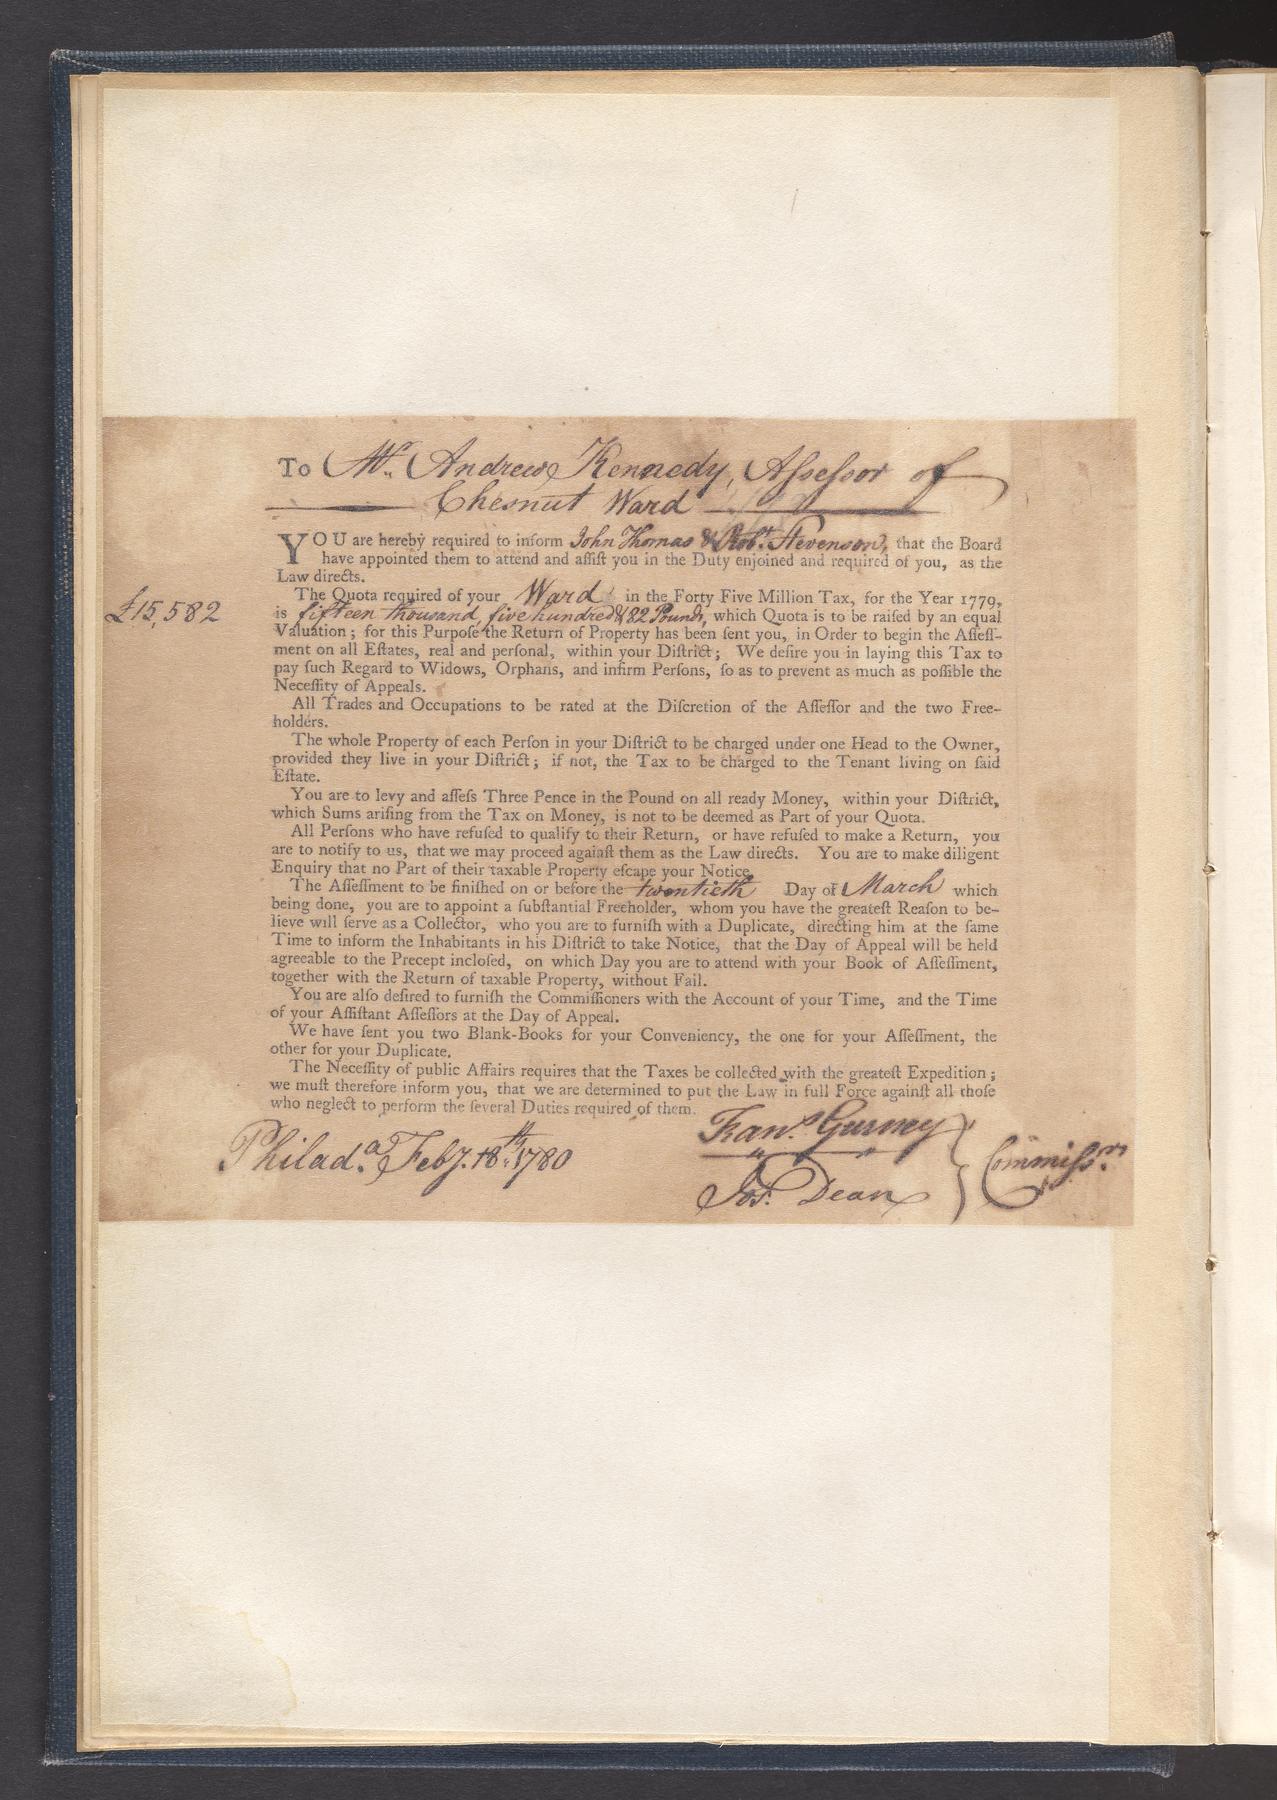 To Mr. Andrew Kennedy, Aſseſsor of
Chesnut Ward
YOU are hereby required to inform John Thomas & Robt. Stevenson, that the Board
have appointed them to attend and aſſiſt you in the Duty enjoined and required of you, as the
Law directs.
The Quota required of your Ward in the Forty Five Million Tax, for the Year 1779,
£15,582
is fifteen thousand, five hundred & 82 Pounds, which Quota is to be raiſed by an equal
Valuation; for this Purpoſe the Return of Property has been ſent you, in Order to begin the Aſſeſſ-
ment on all Eſtates, real and perſonal, within your Diſtrict; We deſire you in laying this Tax to
pay ſuch Regard to Widows, Orphans, and infirm Perſons, ſo as to prevent as much as poſſible the
Neceſſity of Appeals.
All Trades and Occupations to be rated at the Diſcretion of the Aſſeſſor and the two Free-
holders.
The whole Property of each Perſon in your Diſtrict to be charged under one Head to the Owner,
provided they live in your Diſtrict; if not, the Tax to be charged to the Tenant living on ſaid
Eſtate.
You are to levy and aſſeſs Three Pence in the Pound on all ready Money, within your Diſtrict,
which Sums ariſing from the Tax on Money, is not to be deemed as Part of your Quota.
All Perſons who have refuſed to qualify to their Return, or have refuſed to make a Return, you
are to notify to us, that we may proceed againſt them as the Law directs. You are to make diligent
Enquiry that no Part of their taxable Property eſcape your Notice.
The Aſſeſſment to be finiſhed on or before the twentieth Day of March which
being done, you are to appoint a ſubſtantial Freeholder, whom you have the greateſt Reaſon to be-
lieve will ſerve as a Collector, who you are to furniſh with a Duplicate, directing him at the ſame
Time to inform the Inhabitants in his Diſtrict to take Notice, that the Day of Appeal will be held
agreeable to the Precept incloſed, on which Day you are to attend with your Book of Aſſeſſment,
together with the Return of taxable Property, without Fail.
You are alſo deſired to furniſh the Commiſſioners with the Account of your Time, and the Time
of your Aſſiſtant Aſſeſſors at the Day of Appeal.
We have ſent you two Blank-Books for your Conveniency, the one for your Aſſeſſment, the
other for your Duplicate.
The Neceſſity of public Affairs requires that the Taxes be collected with the greateſt Expedition;
we muſt therefore inform you, that we are determined to put the Law in full Force againſt all thoſe
who neglect to perform the ſeveral Duties required of them.
Frans. Gurney
Philada. Feby. 18th. 1780
Commiſsrs.
Jos. Dean